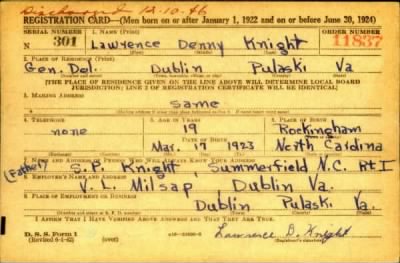 Discharged 12-10-46
REGISTRATION CARD—(Men born on or after January 1, 1922 and on or before June 30, 1924)
SERIAL NUMBER 1. NAME (Print) ORDER NUMBER
N 301 Lawrence Denny Knight 11837
2. PLACE OF RESIDENCE (Print)
Gen. Del. Dublin Pulaski Va
[THE PLACE OF RESIDENCE GIVEN ON THE LINE ABOVE WILL DETERMINE LOCAL BOARD
JURISDICTION; LINE 2 OF REGISTRATION CERTIFICATE WILL BE IDENTICAL]
3. MAILING ADDRESS
same
4. TELEPHONE 5. AGE IN YEARS 6. PLACE OF BIRTH
none 19 Rockingham
DATE OF BIRTH
Mar. 17 1923 North Carolina
7. NAME AND ADDRESS OF PERSON WHO WILL ALWAYS KNOW YOUR ADDRESS
(Father) S. P. Knight Summerfield N.C. Rt I
8. EMPLOYER'S NAME AND ADDRESS
V. L. Milsap Dublin Va.
9. PLACE OF EMPLOYMENT OR BUSINESS
Dublin Pulaski Va.
I AFFIRM THAT I HAVE VERIFIED ABOVE ANSWERS AND THAT THEY ARE TRUE.
D. S. S. Form 1
(Revised 6-1-42) (over)
Lawrence D. Knight